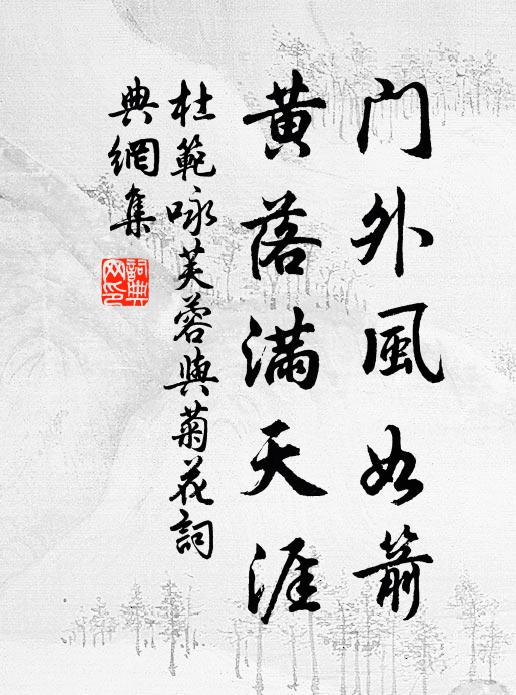 門外風如箭
黃落滿天涯
杜範咏芙蓉與菊花詞
典網集
詞典
网印